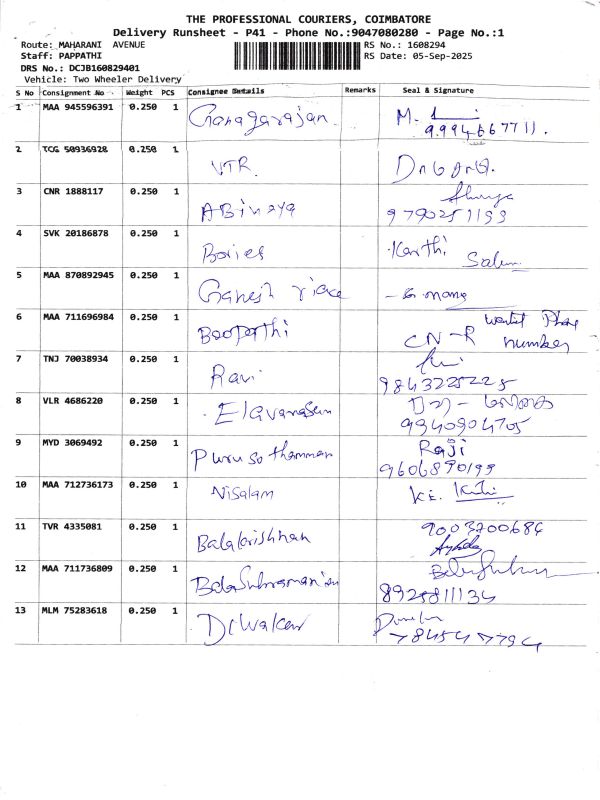 THE PROFESSIONAL COURIERS, COIMBATORE
Delivery Runsheet - P41 - Phone No.:9047080280 - Page No.:1
Route: MAHARANI AVENUE RS No.: 1608294
Staff: PAPPATHI RS Date: 05-Sep-2025
DRS No.: DCJB160829401
Vehicle: Two Wheeler Delivery
S No Consignment No Weight PCS Consignee Details Remarks Seal & Signature
1 MAA 945596391 0.250 1 Ganagarajan M.
9994667711.
2 TCG 50936928 0.250 1
VTR.
3 CNR 1888117 0.250 1 ABinaya
9790251193
4 SVK 20186878 0.250 1 Bories Karthi Salem
5 MAA 870892945 0.250 1 Ganesh
6 MAA 711696984 0.250 1 Boopathi CN-R Phone number
7 TNJ 70038934 0.250 1 Ravi
9843225225
8 VLR 4686220 0.250 1 Elavarasan
9940904705
9 MYD 3069492 0.250 1 Purusothamman Raji
9606890199
10 MAA 712736173 0.250 1 Nisalam
11 TVR 4335081 0.250 1 Balakrishnan 9003700684
12 MAA 711736809 0.250 1 BalaSubramanian
8925811134
13 MLM 75283618 0.250 1 Diwakar